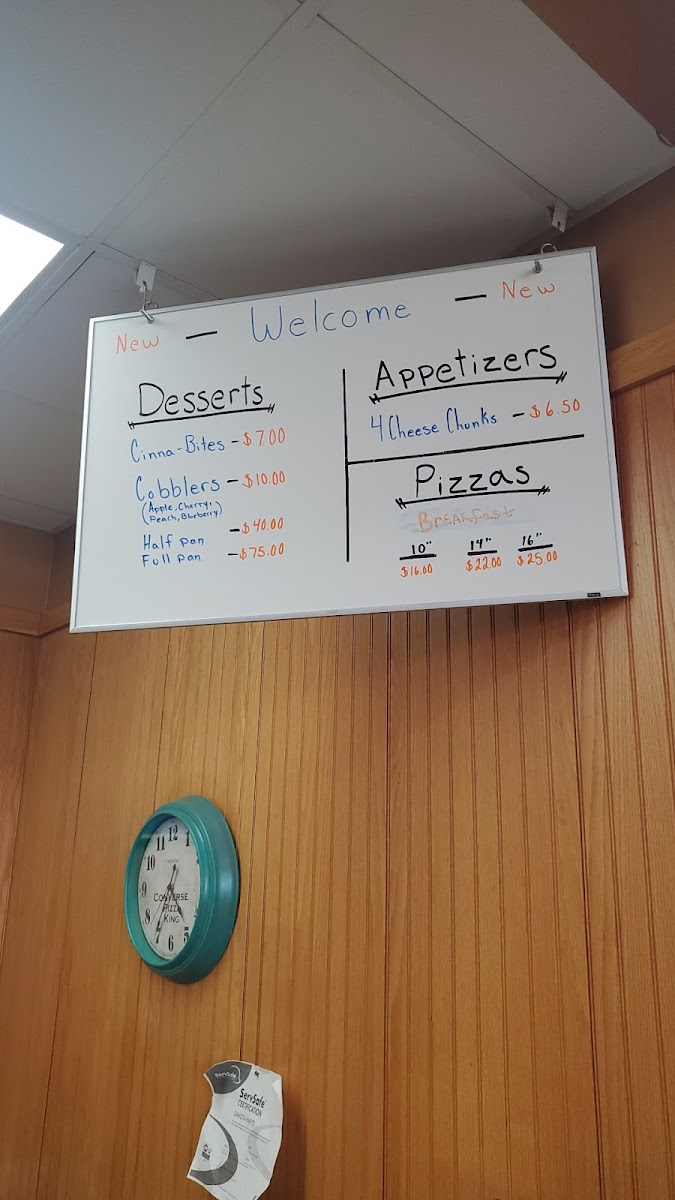 New — Welcome — New
Desserts
Cinna-Bites - $7.00
Cobblers - $10.00
(Apple, Cherry,
Peach, Blueberry)
Half pan - $40.00
Full pan - $75.00
Appetizers
4 Cheese Chunks - $6.50
Pizzas
Breakfast
10" 14" 16"
$16.00 $22.00 $25.00
11 12 1
10
9
8
7 6 5
CONVERSE
PIZZA
KING
ServSafe
ServSafe
CERTIFICATION